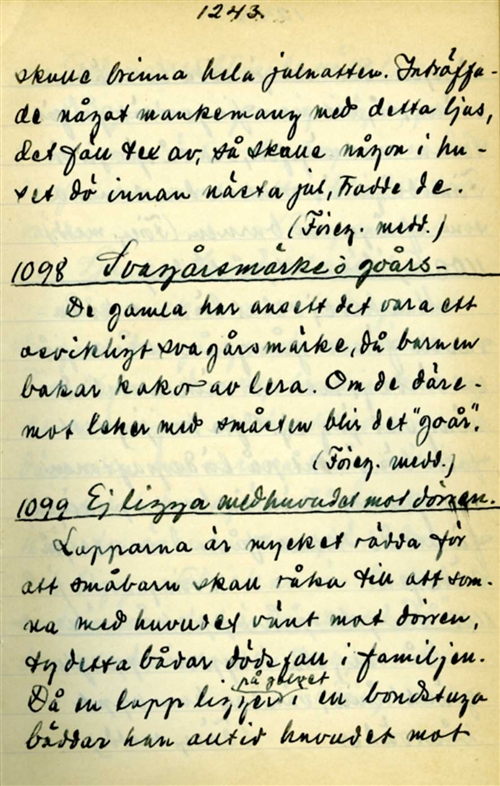 1243.
skulle brinna hela julnatten. Inträffa-
de något mankemang med detta ljus,
det föll t ex av, så skulle någon i hu-
set dö innan nästa jul, trodde de.
(Föreg. medd.)
1098 Svagårsmärke o goårs-
De gamla har ansett det vara ett
osvikligt svagårsmärke, då barnen
bakar kakor av lera. Om de däre-
mot leker med småsten blir det "goår".
(Föreg. medd.)
1099 Ej ligga med huvudet mot dörren.
Lapparna är mycket rädda för
att småbarn skall råka till att som-
na med huvudet vänt mot dörren,
ty detta bådar dödsfall i familjen.
på golvet
Då en lapp ligger i en bondstuga
bäddar han alltid huvudet mot